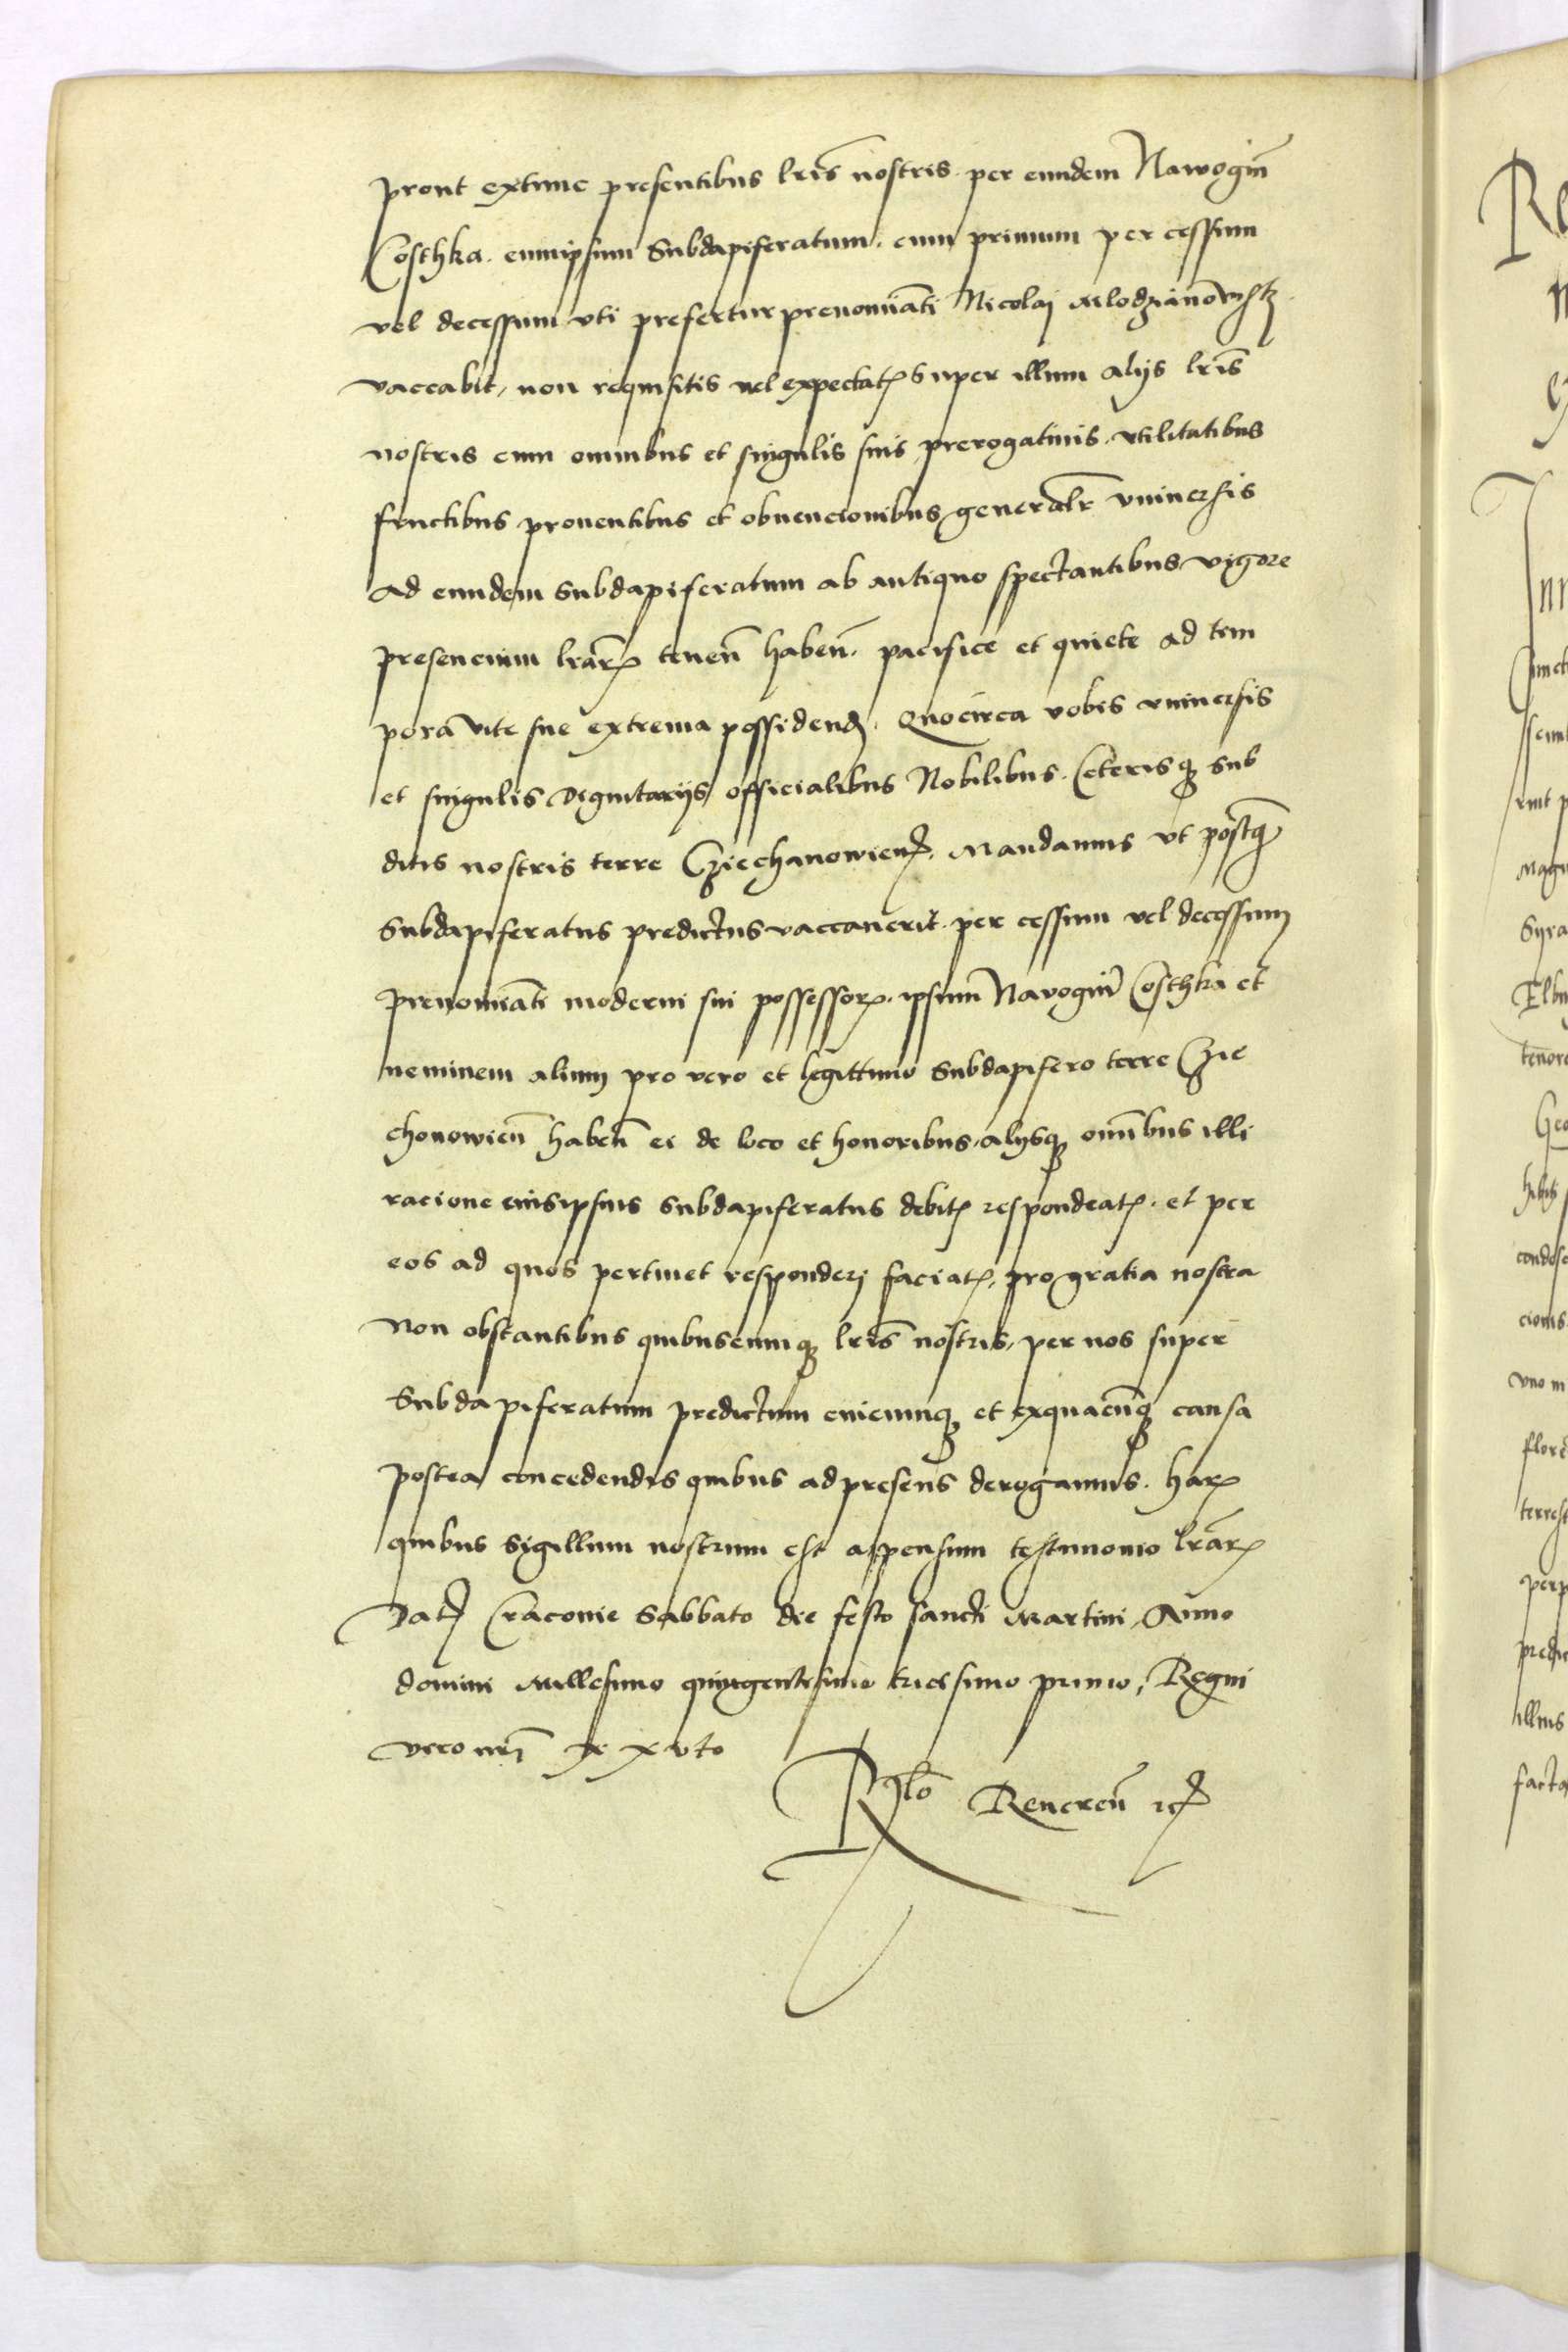 prout extunc presentibus lrīs nostris per eundem Nawogiū
Costhka. eumipsum Subdapiferatum. cum primum per cessum
vel decessum uti prefertur prenomīati Nicolaj Mlodzianowsk
vaccabit, non requisitis vel expectatꝭ super illum alijs lrīs
nostris cum omnibus et singulis suis prerogatiuis. vtilitatibus
fructibus prouentibus et obuencionibus generalr̄ vniuersis
Ad eundem Subdapiferatum ab antiquo spectantibus, vigore
presencium lrarꝝ tenen̄ haben̄. pacifice et quiete ad tem
pora vite sue extrema possidend. Quocirca vobis vniuersis
et singulis Dignitarijs, officialibus Nobilibus. Ceterisqꝫ sub
ditis nostris terre Cziechanowien̄. Mandamus vt postqꝫ
Subdapiferatus predictus vaccauerit. per cessum vel decessum
prenomīati moderni sui possessorꝭ. ipsum Navogiū Costhka et
neminem alium pro vero et legittimo Subdapifero terre Czie
chonowien̄ haben̄ ei de loco et honoribus, alijsqꝫ om̄ibus illi
racione eiusipsius Subdapiferatus debitꝭ respondeatꝭ. et per
eos ad quos pertinet responderj faciatꝭ, pro gratia nostra
Non obstantibus quibuscunqꝫ lrīs nostris, per nos super
Subdapiferatum predictum cuicunqꝫ et exquacūqꝫ causa
postea concedendis quibus adpresens derogamus. harꝝ
quibus Sigillum nostrum est appensum testimonio lrarꝝ
Datꝭ Cracouie Sabbato die festo sancti Martini, Anno
domini Millesimo quingentesimo tricesimo primo, Regni
vero nrī xxvto
Rlō Reueren̄ etc